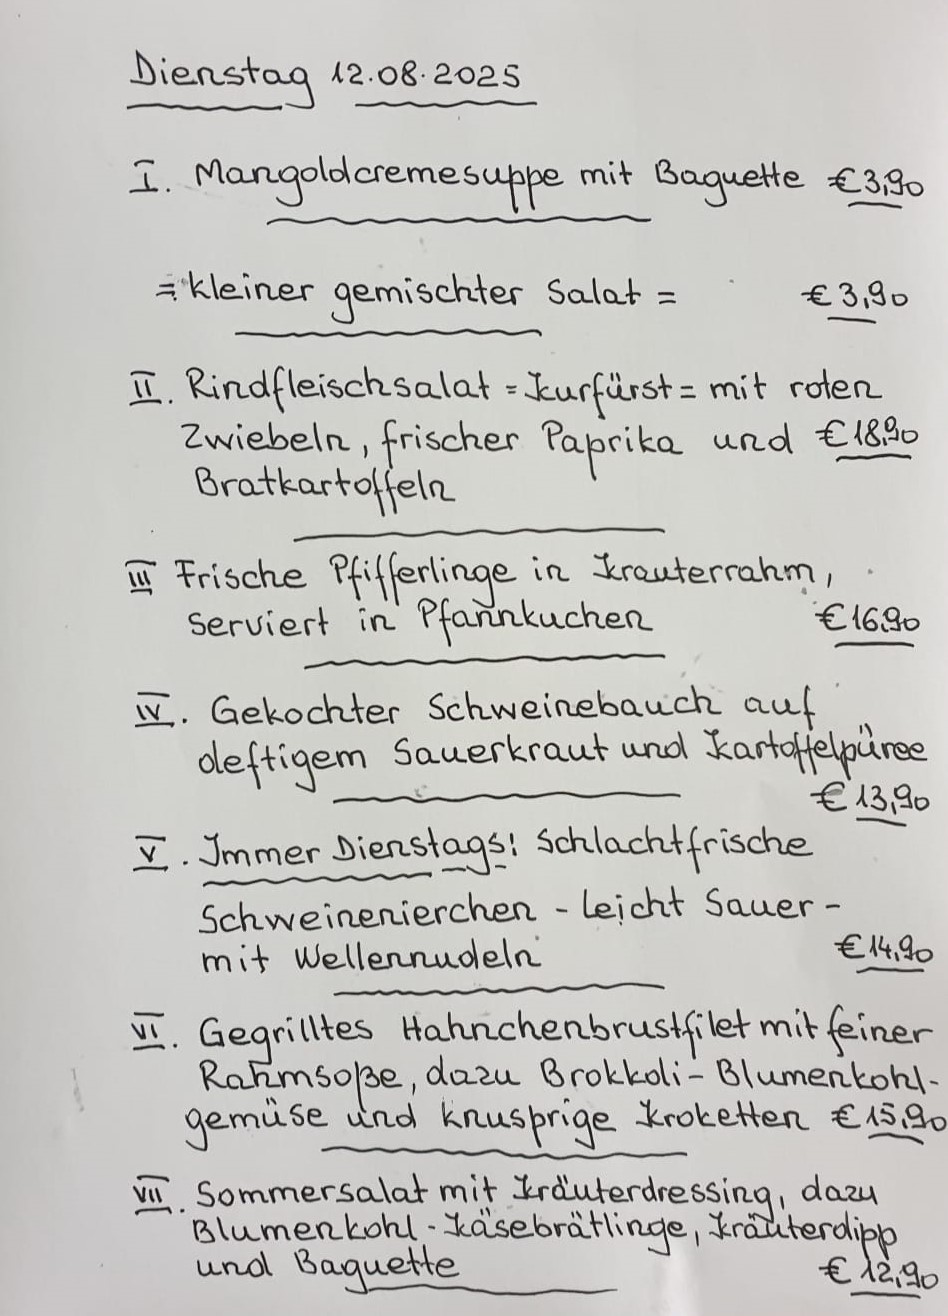 Dienstag 12.08.2025
I. Mangoldcremesuppe mit Baguette €3,90
= kleiner gemischter Salat = €3,90
II. Rindfleischsalat = Kurfürst = mit roten
Zwiebeln, frischer Paprika und €18,90
Bratkartoffeln
III Frische Pfifferlinge in Krauterrahm,
serviert in Pfannkuchen €16,90
IV. Gekochter Schweinebauch auf
deftigem Sauerkraut und Kartoffelpüree
€13,90
V. Immer Dienstags: Schlachtfrische
Schweinenierchen - leicht Sauer -
mit Wellennudeln €14,90
VI. Gegrilltes Hahnchenbrustfilet mit feiner
Rahmsoße, dazu Brokkoli-Blumenkohl-
gemüse und knusprige Kroketten €15,90
VII. Sommersalat mit Kräuterdressing, dazu
Blumenkohl-Käsebrätlinge, Kräuterdipp
und Baguette €12,90